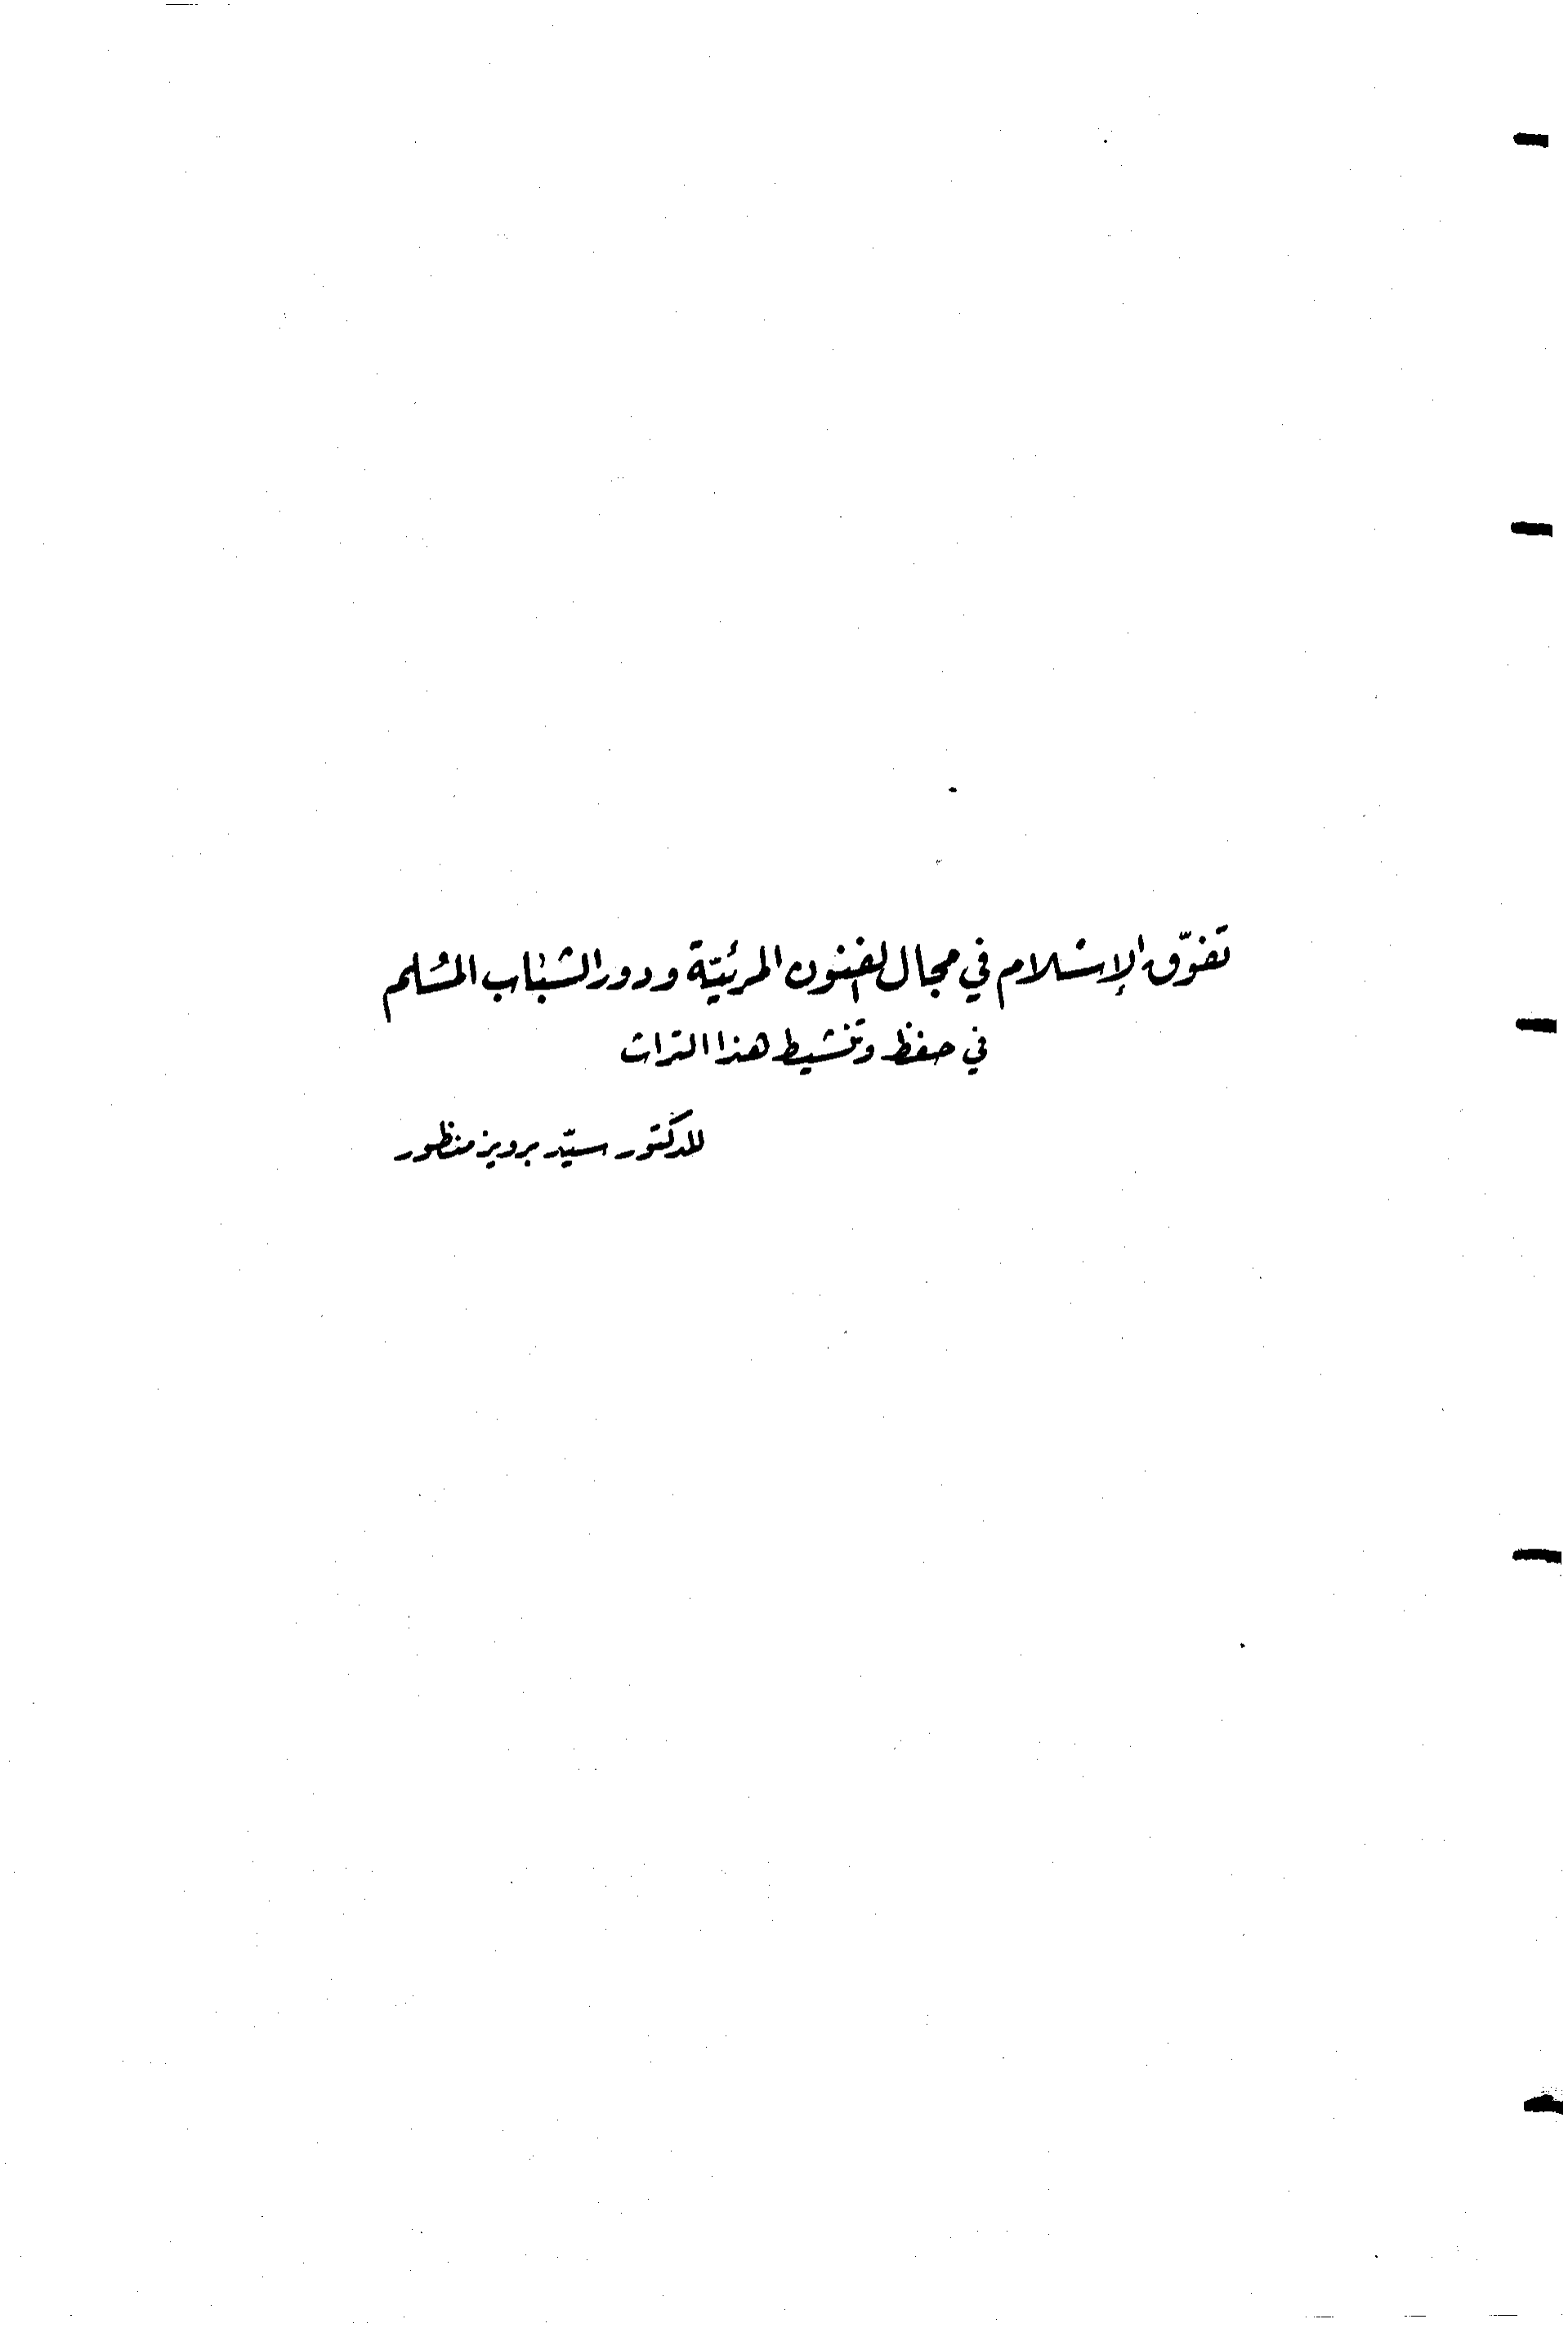 تفوّق الإسلام في مجال الفنون المرئيّة ودور الشباب المسُلم
في حفظ وتنشيط هذا التراث
للدكتور سيّد برويز منظور